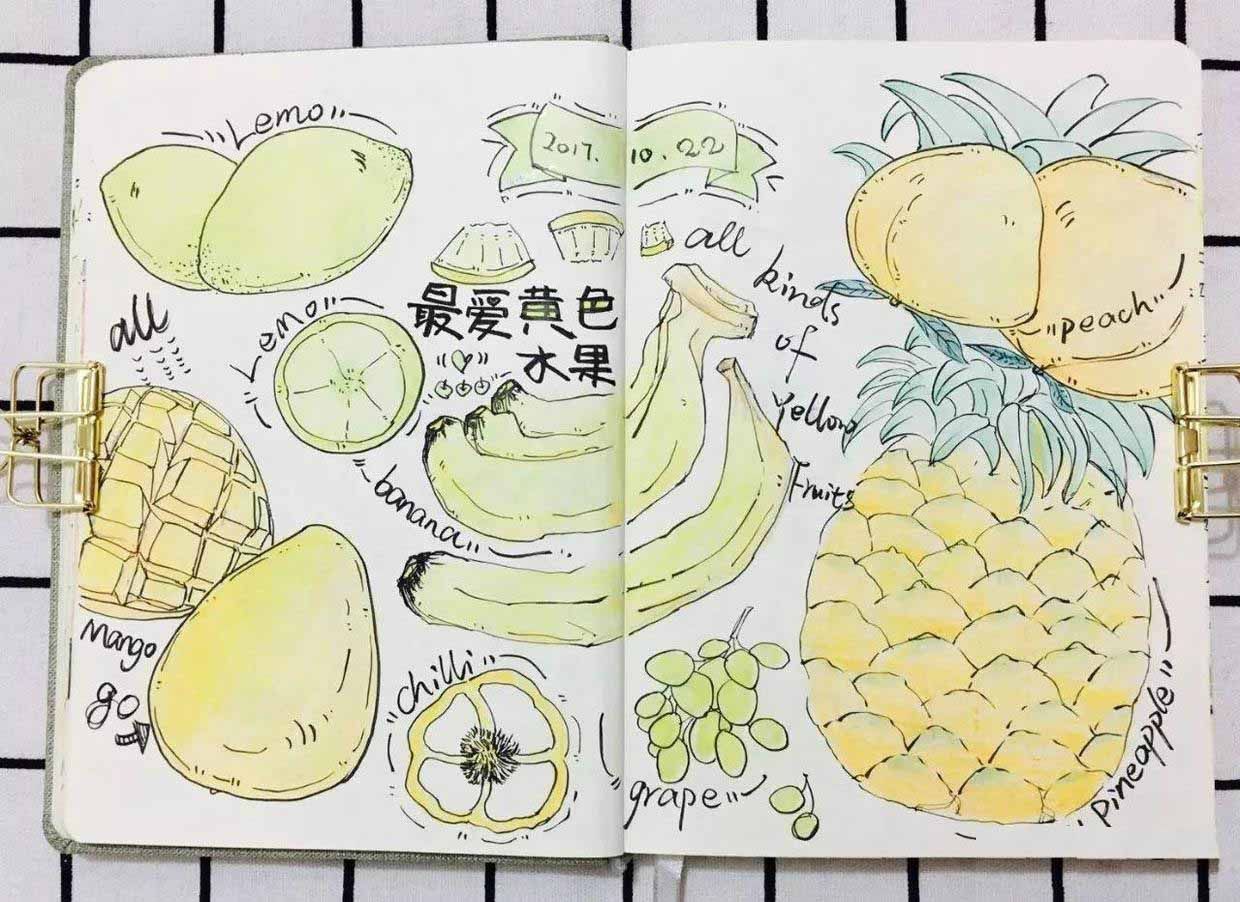 Lemo
2017. 10. 22
all
kinds
of
Yellow
Fruits
peach
all
Lemo
最爱黄色
水果
banana
Mango
go
chilli
grape
pineapple